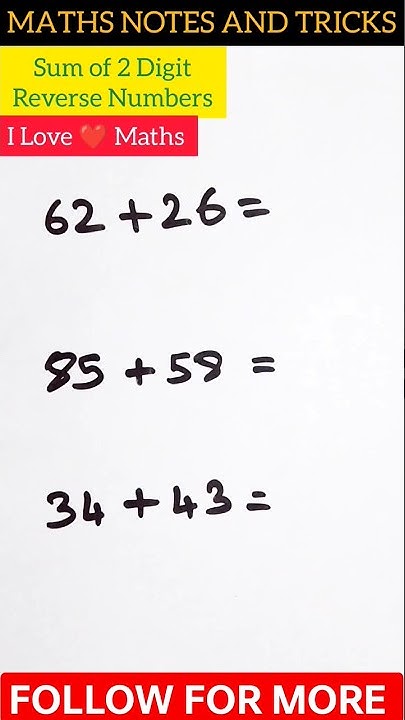 MATHS NOTES AND TRICKS
Sum of 2 Digit
Reverse Numbers
I Love ❤️ Maths
62 + 26 =
85 + 58 =
34 + 43 =
FOLLOW FOR MORE